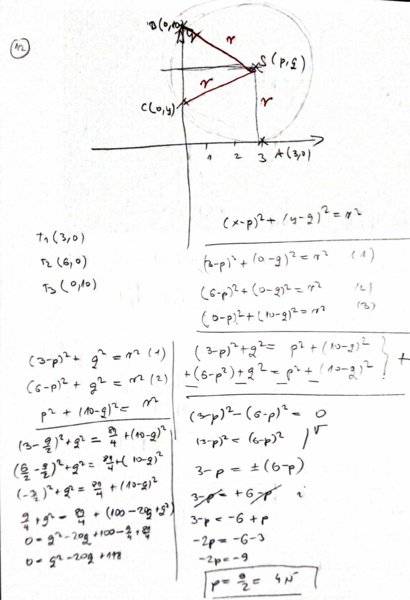 12
B(0,10)
r
S(p,q)
r
C(0,y)
r
1 2 3 A(3,0)
(x-p)² + (y-q)² = r²
T1 (3,0)
T2 (6,0)
T3 (0,10)
(3-p)² + (0-q)² = r² (1)
(6-p)² + (0-q)² = r² (2)
(0-p)² + (10-q)² = r² (3)
(3-p)² + q² = r² (1)
(6-p)² + q² = r² (2)
p² + (10-q)² = r²
(3-9/2)² + q² = 81/4 + (10-q)²
(6/2-9/2)² + q² = 81/4 + (10-q)²
(-3/2)² + q² = 81/4 + (10-q)²
9/4 + q² = 81/4 + (100-20q+q²)
0 = q² - 20q + 118
(3-p)² + q² = p² + (10-q)²
+ (6-p²) + q² = p² + (10-q)² +
(3-p)² - (6-p)² = 0
(3-p)² = (6-p)² /√
3-p = ±(6-p)
3-p = +6-p
3-p = -6+p
-2p = -6-3
-2p = -9
p = 9/2 = 4,5